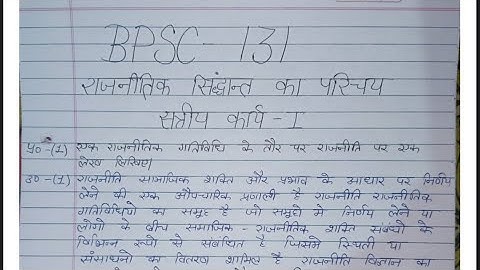 BPSC-131
राजनीतिक सिंद्धान्त का परिचय
सत्रीय कार्य - I
प्र०-(1) एक राजनीतिक गतिविधि के तौर पर राजनीति पर एक
लेख लिखिए।
उ०-(1) राजनीति सामाजिक शक्ति और प्रभाव के आधार पर निर्णय
लेने की एक औपचारिक प्रणाली है राजनीति राजनीतिक
गतिविधियों का समूह है जो समूहों में निर्णय लेने या
लोगों के बीच समाजिक - राजनीतिक शक्ति संबंधो के
विभिन्न रूपो से संबंधित है जिसमे स्थिती या
संसाधनो का वितरण शामिल है राजनीति विज्ञान का